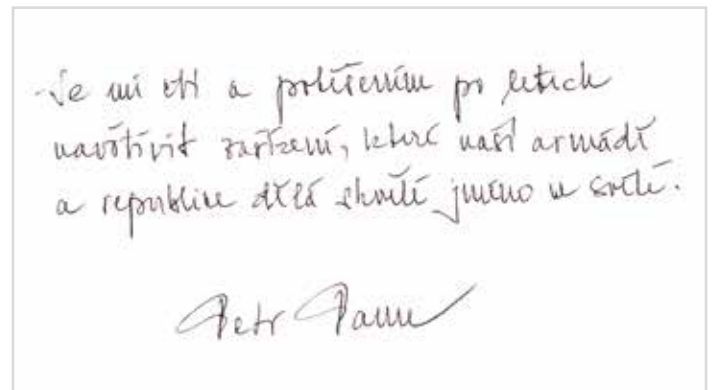 Je mi ctí a potěšením po letech
navštívit zařízení, které naší armádě
a republice dělá skvělé jméno ve světě.
Petr Pavel